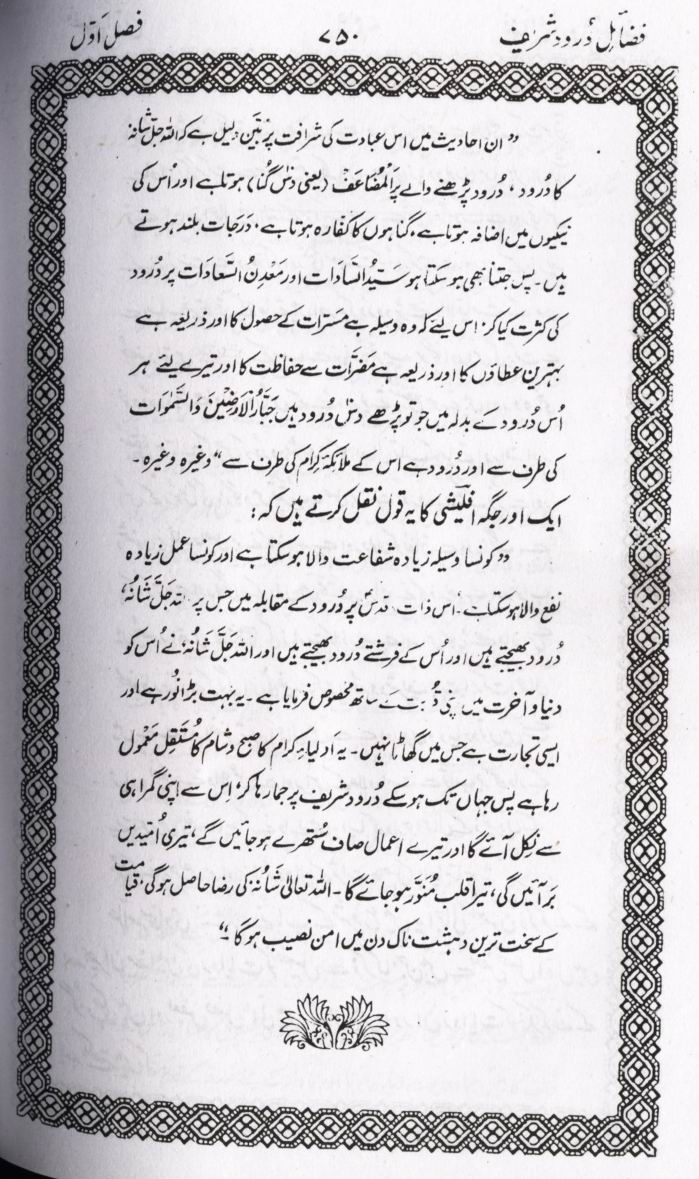 فضائل دُرود شریف ۷۵۰ فصل اَوّل
” ان احادیث میں اس عبادت کی شرافت پر بَیِّن دلیل ہے کہ اللہ جلَّ شانہٗ
کا دُرود، دُرود پڑھنے والے پر اَلْمُضَاعَفْ (یعنی دس گُنا) ہوتا ہے اور اُس کی
نیکیوں میں اضافہ ہوتا ہے، گناہوں کا کفّارہ ہوتا ہے، دَرَجات بلند ہوتے
ہیں۔ پس جتنا بھی ہو سکتا ہو سَیِّدُ السَّادَات اور مَعْدِنُ السَّعَادَات پر دُرود
کی کثرت کیا کر، اس لئے کہ وہ وسیلہ ہے مسّرات کے حصول کا اور ذریعہ ہے
بہترین عطاؤں کا اور ذریعہ ہے مَضَرَّات سے حفاظت کا اور تیرے لئے ہر
اُس دُرود کے بدلہ میں جو تو پڑھے دس دُرود ہیں جَبَّارُ الْاَرَضِیْنَ وَالسَّمٰوَات
کی طرف سے اور دُرود ہے اس کے ملائکۂ کرام کی طرف سے “ وغیرہ وغیرہ۔
ایک اور جگہ اقلیشی کا یہ قول نقل کرتے ہیں کہ :
” کونسا وسیلہ زیادہ شفاعت والا ہو سکتا ہے اور کونسا عمل زیادہ
نفع والا ہو سکتا ہے۔ اس ذات اقدس پر دُرود کے مقابلہ میں جس پر اللہ جَلَّ شَانُہٗ،
دُرود بھیجتے ہیں اور اُس کے فرشتے دُرود بھیجتے ہیں اور اللہ جَلَّ شَانُہٗ نے اُس کو
دنیا و آخرت میں اپنی قُربت کے ساتھ مخصوص فرمایا ہے۔ یہ بہت بڑا نُور ہے اور
ایسی تجارت ہے جس میں گھاٹا نہیں۔ یہ اولیاءِ کرام کا صبح و شام کا مُستَقِل مَعْمُول
رہا ہے پس جہاں تک ہو سکے دُرود شریف پر جما رہا کر، اِس سے اپنی گمراہی
سے نِکل آئے گا اور تیرے اعمال صاف سُتھرے ہو جائیں گے، تیری اُمّیدیں
بَر آئیں گی، تیرا قلب مُنَوَّر ہو جائے گا۔ اللہ تعالیٰ شَانُہٗ کی رضا حاصل ہوگی، قیامت
کے سخت ترین دہشت ناک دن میں امن نصیب ہوگا۔“